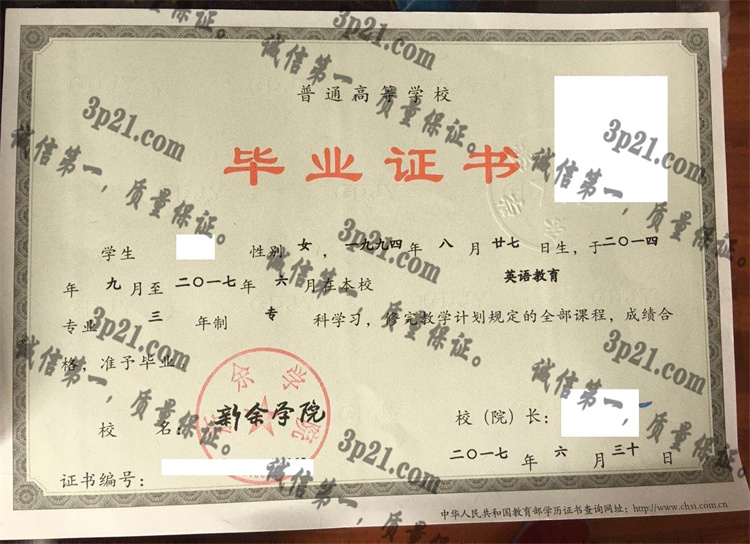 普通高等学校
毕业证书
学生 性别 女 ，一九九四年 八 月 廿七 日生，于二〇一四
年 九 月至 二〇一七年 六 月在本校 英语教育
专业 三 年制 专 科学习，修完教学计划规定的全部课程，成绩合
格，准予毕业
新余学院
校 名： 新余学院
校（院）长：
二〇一七 年 六 月 三十 日
证书编号：
中华人民共和国教育部学历证书查询网址：http://www.chsi.com.cn
3p21.com
诚信第一，质量保证。
3p21.com
诚信第一，质量保证。
3p21.com
诚信第一，质量保证。
3p21.com
诚信第一，质量保证。
3p21.com
诚信第一，质量保证。
3p21.com
诚信第一，质量保证。
3p21.com
诚信第一，质量保证。
3p21.com
诚信第一，质量保证。